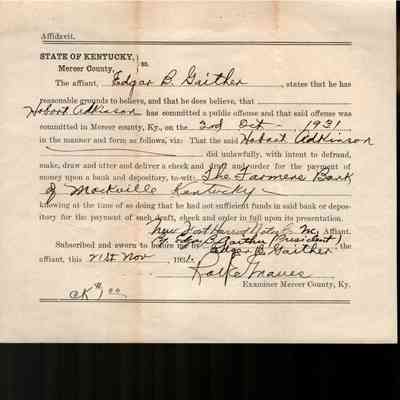 Affidavit.
STATE OF KENTUCKY, } ss.
Mercer County,
The affiant, Edgar B. Gaither, states that he has
reasonable grounds to believe, and that he does believe, that
Hobart Adkinson has committed a public offense and that said offense was
committed in Mercer county, Ky., on the 3rd Oct - 1931
in the manner and form as follows, viz: That the said Hobart Adkinson
did unlawfully, with intent to defraud,
make, draw and utter and deliver a check and draft and order for the payment of
money upon a bank and depository, to-wit: The Farmers Bank
of Mackville Kentucky
knowing at the time of so doing that he had not sufficient funds in said bank or depos-
itory for the payment of such draft, check and order in full upon its presentation.
New Fort Harrod Inc, Affiant.
By Edgar B. Gaither (President)
Subscribed and sworn to before me by, the Edgar B. Gaither
affiant, this 21st Nov, 1931.
Examiner Mercer County, Ky.
CK